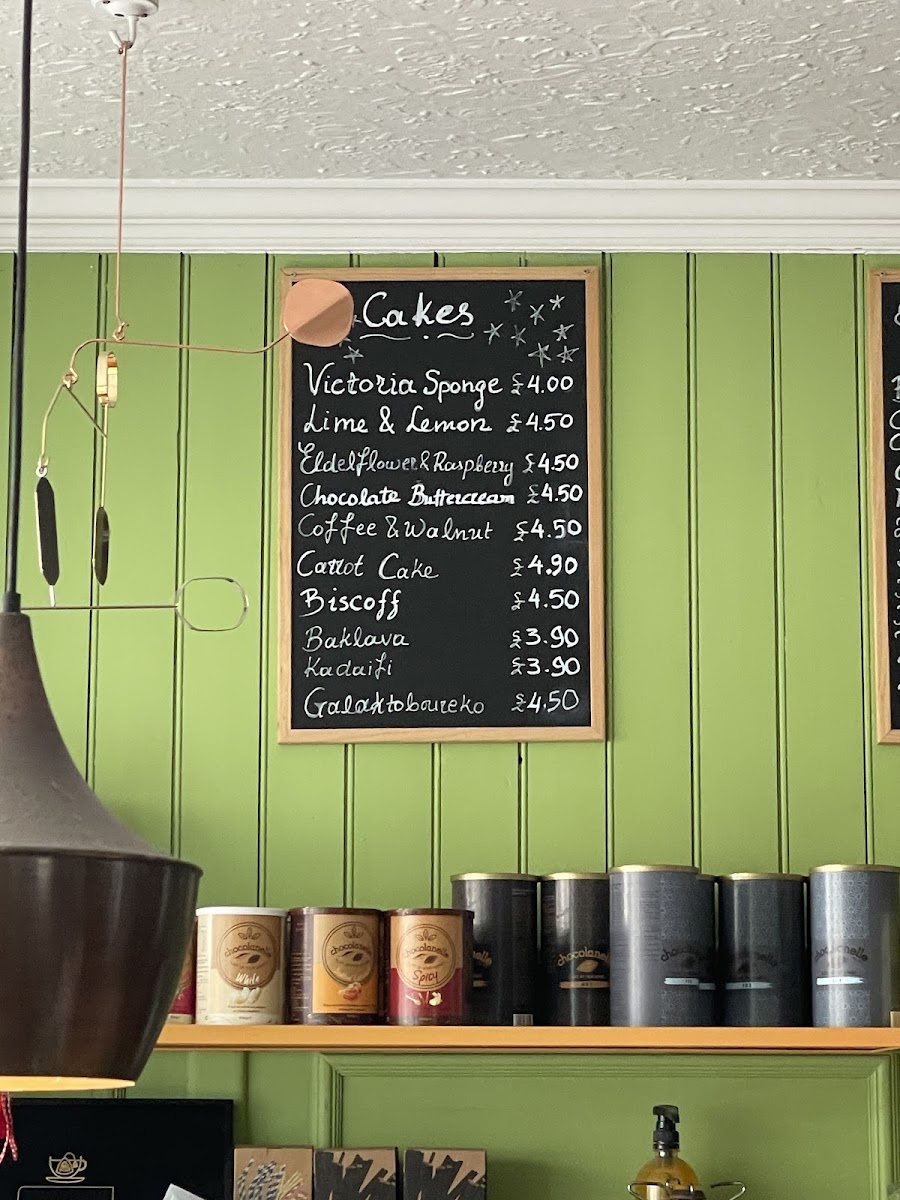 Cakes
Victoria Sponge £4.00
Lime & Lemon £4.50
Eldelflower & Raspberry £4.50
Chocolate Buttercream £4.50
Coffee & Walnut £4.50
Carrot Cake £4.90
Biscoff £4.50
Baklava £3.90
Kadaifi £3.90
Galaktoboureko £4.50
chocolanelle
White
chocolanelle
chocolanelle
Spicy
chocolanelle